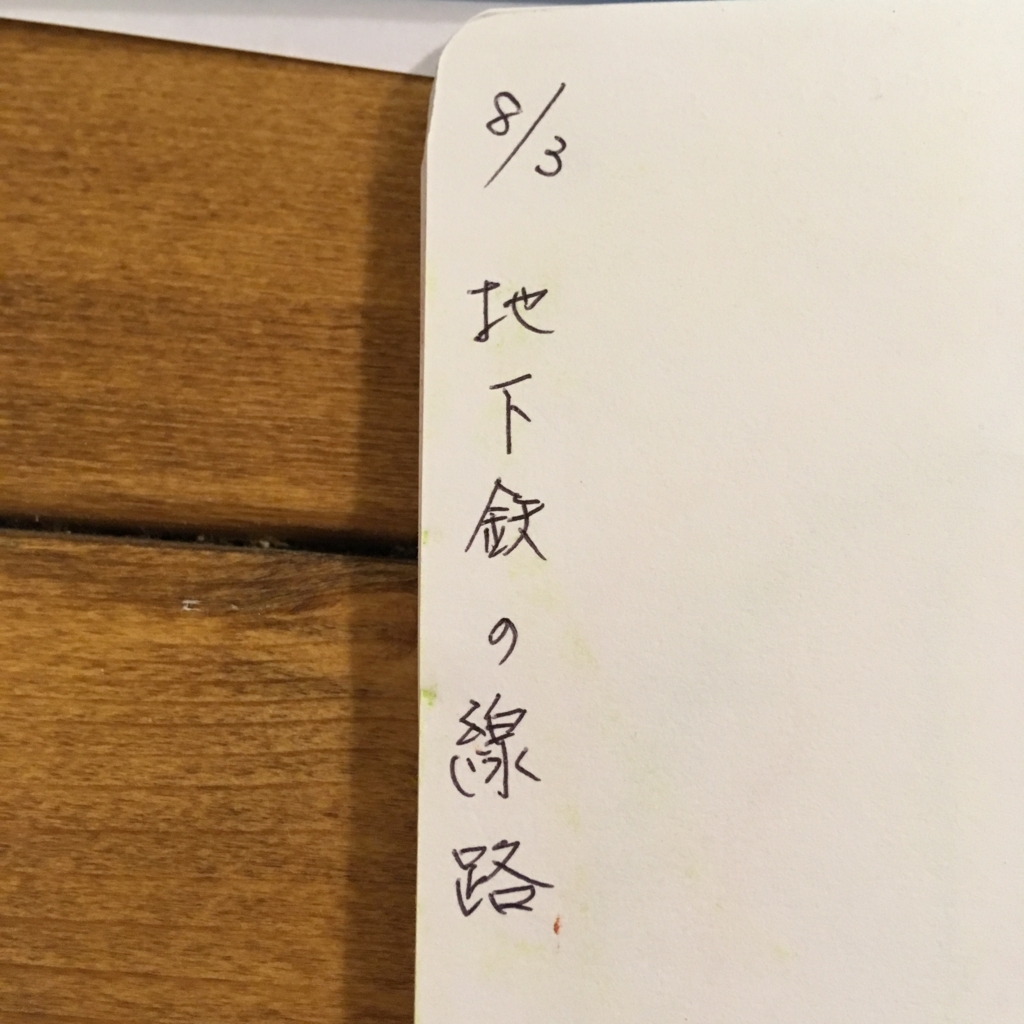 8/3
地下鉄の線路